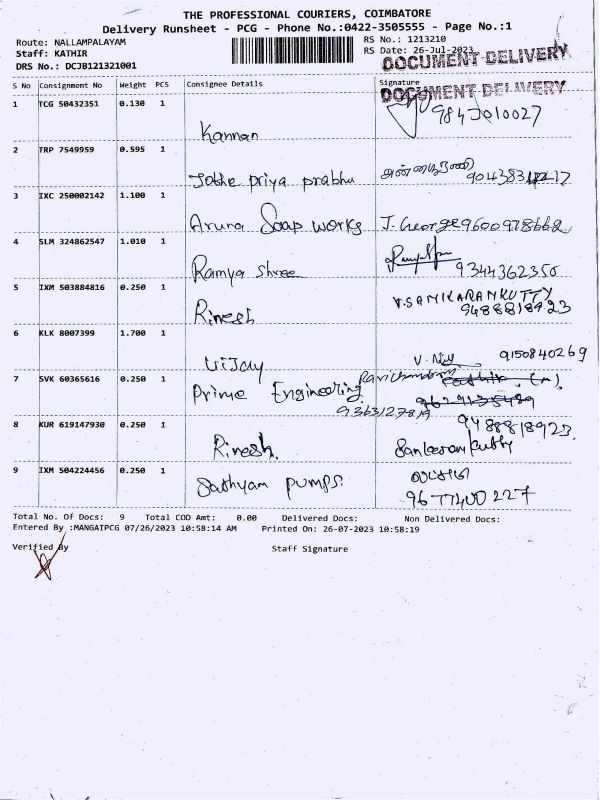 THE PROFESSIONAL COURIERS, COIMBATORE
Delivery Runsheet - PCG - Phone No.:0422-3505555 - Page No.:1
Route: NALLAMPALAYAM
RS No.: 1213210
Staff: KATHIR
RS Date: 26-Jul-2023
DRS No.: DCJB121321001
DOCUMENT DELIVERY
S No Consignment No Weight PCS Consignee Details Signature
DOCUMENT DELIVERY
1 TCG 50432351 0.130 1
Kannan
2 TRP 7549959 0.595 1
Jothe priya prabhu
3 IXC 250002142 1.100 1
Aruna Soap works J. George 9600978662
4 SLM 324862547 1.010 1
Ramya Shree 9344362350
5 IXM 503884816 0.250 1
Rinesh V.SANKARANKUTTY
9488818923
6 KLK 8007399 1.700 1
Vijay 9150840269
7 SVK 60365616 0.250 1
Prime Engineering Ravichandran
8 KUR 619147930 0.250 1
9488818923
Rinesh. Sankarankutty
9 IXM 504224456 0.250 1
Sathyam pumps. 9677400227
Total No. Of Docs: 9 Total COD Amt: 0.00 Delivered Docs: Non Delivered Docs:
Entered By :MANGAIPCG 07/26/2023 10:58:14 AM Printed On: 26-07-2023 10:58:19
Verified By Staff Signature